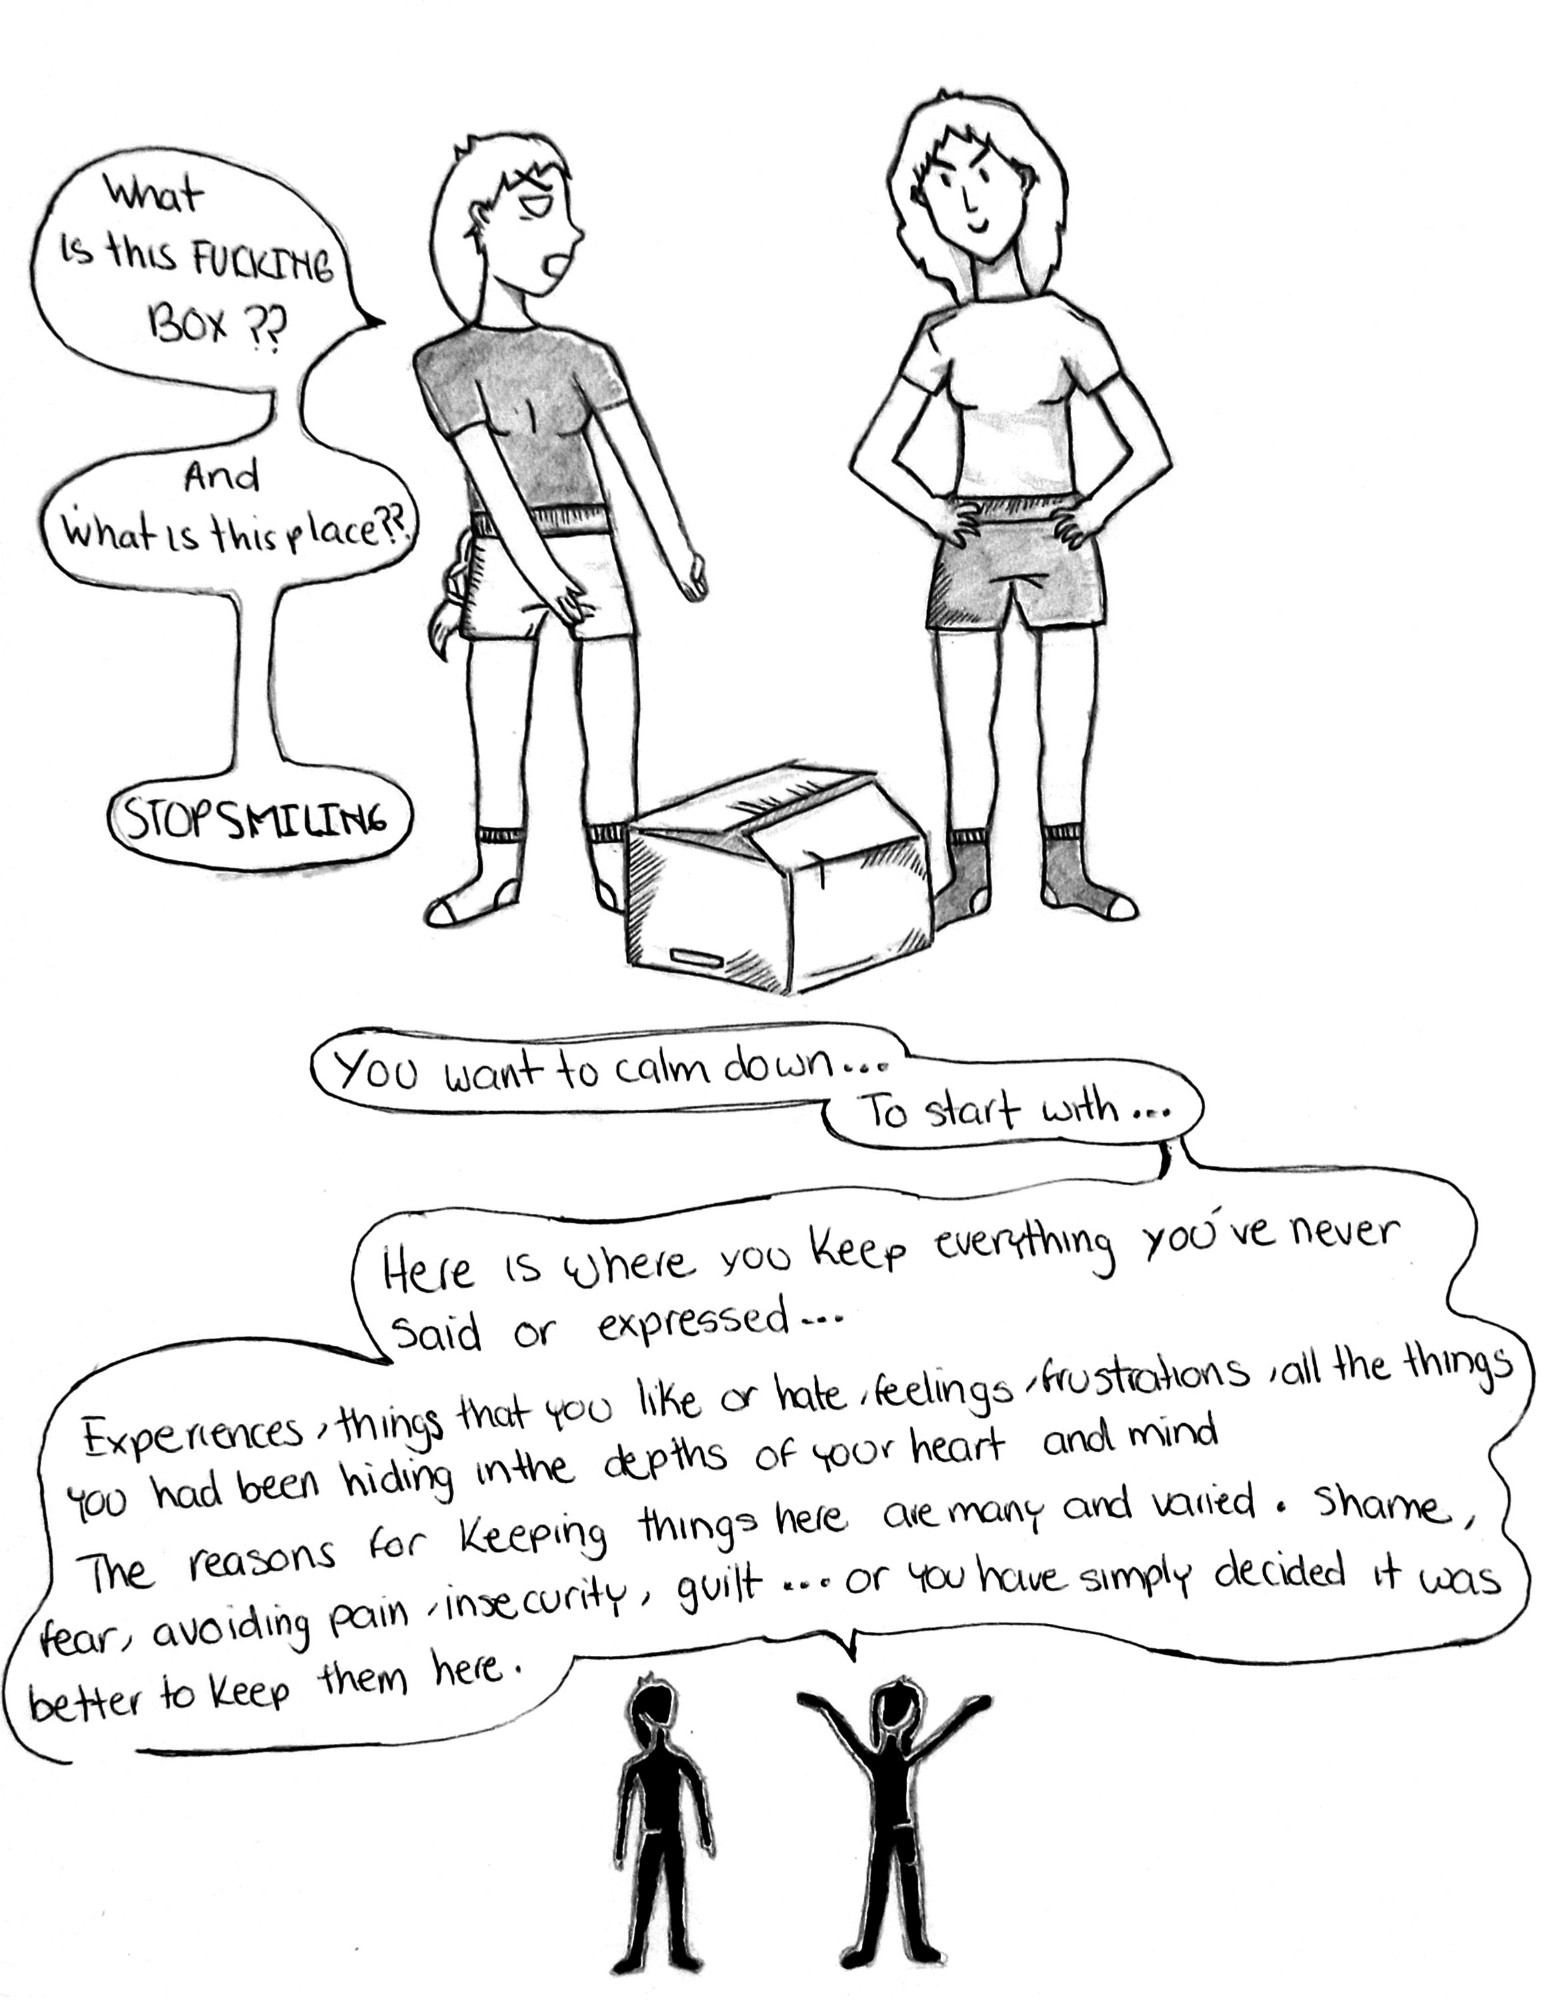 What
is this FUCKING
BOX ??
And
What is this place??
STOP SMILING
You want to calm down...
To start with...
Here is where you keep everything you've never
said or expressed...
Experiences, things that you like or hate, feelings, frustrations, all the things
you had been hiding in the depths of your heart and mind
The reasons for keeping things here are many and varied. Shame,
fear, avoiding pain, insecurity, guilt ... or you have simply decided it was
better to keep them here.